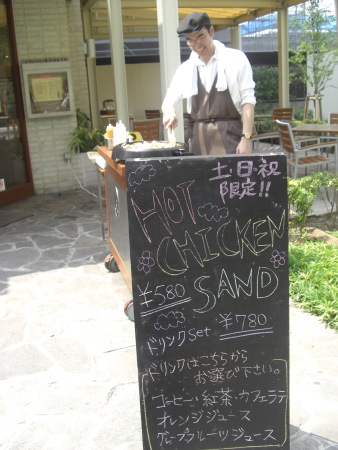 土・日・祝
限定!!
HOT
CHICKEN
¥580 SAND
ドリンクSet ¥780
ドリンクはこちらから
お選び下さい。
コーヒー・紅茶・カフェラテ
オレンジジュース
グレープフルーツジュース